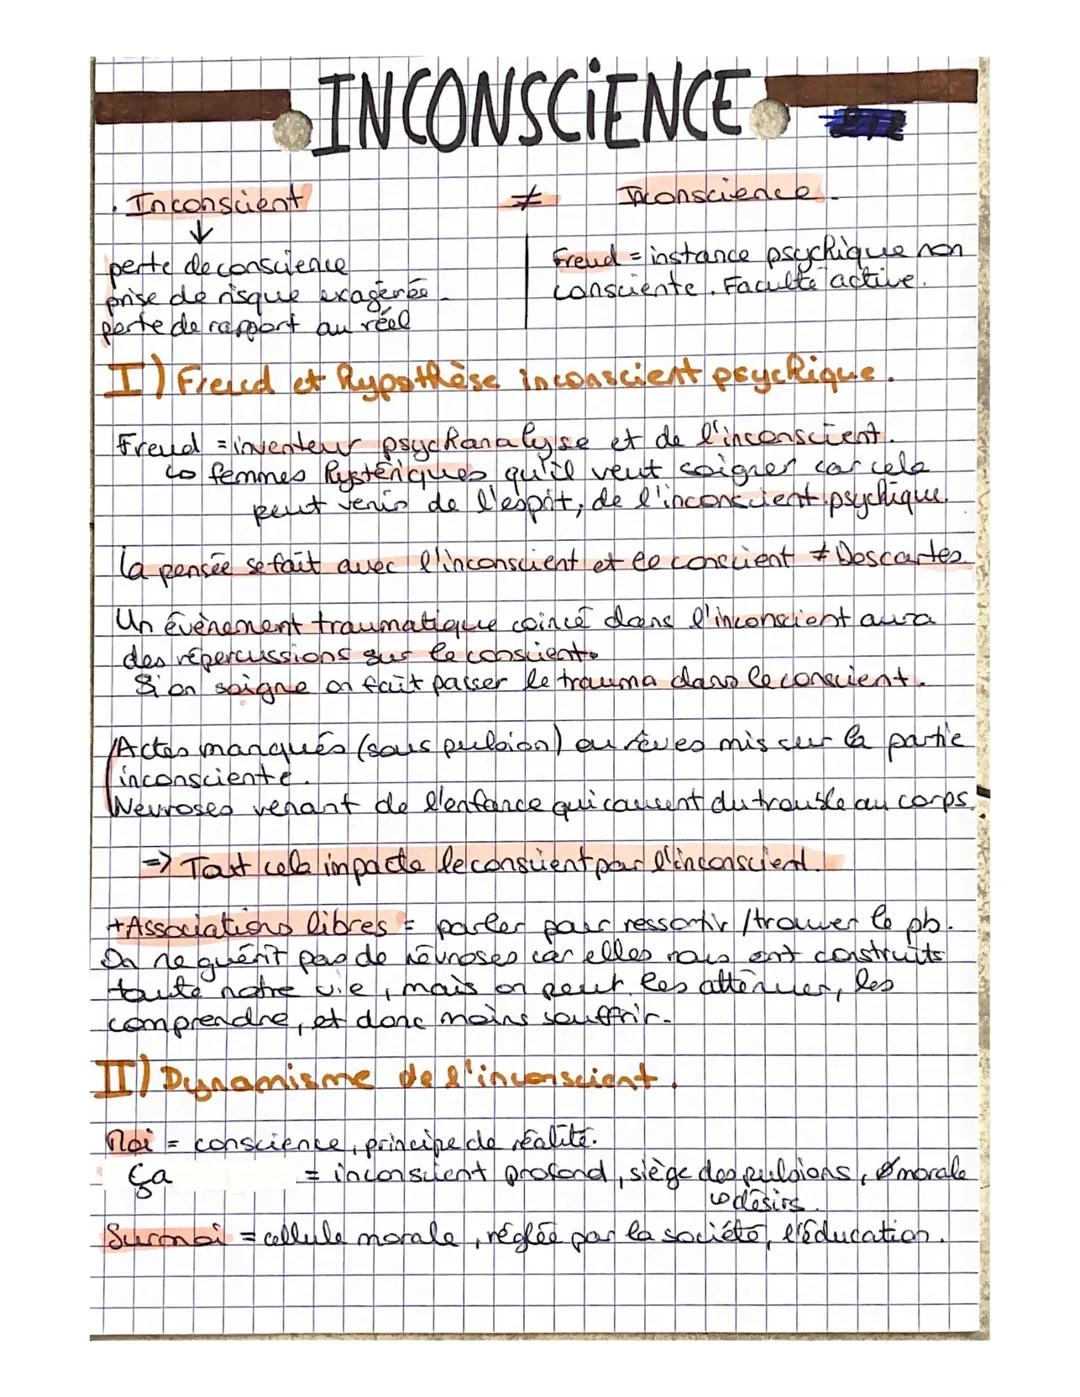 INCONSCiENCE
. Inconscient ≠ Inconscience.
↓
perte de conscience
prise de risque exagérée.
perte de rapport au réel
Freud = instance psychique non
consciente. Faculté active.
I) Freud et hypothèse inconscient psychique.
Freud = inventeur psychanalyse et de l'inconscient.
↳ femmes hystériques qu'il veut soigner car cela
peut venir de l'esprit, de l'inconscient psychique.
la pensée se fait avec l'inconscient et le conscient ≠ Descartes.
Un évènement traumatique coincé dans l'inconscient aura
des répercussions sur le conscient.
Si on soigne on fait passer le trauma dans le conscient.
Actes manqués (sous pulsion) ou rêves mis sur la partie
inconsciente.
Nevroses venant de l'enfance qui causent du trouble au corps.
=> Tout cela impacte le conscient par l'inconscient.
+Associations libres = parler pour ressortir / trouver le pb.
On ne guérit pas de névroses car elles nous ont construits
toute notre vie, mais on peut les atténuer, les
comprendre, et donc moins souffrir.
II) Dynamisme de l'inconscient.
Moi = conscience, principe de réalité.
Ça = inconscient profond, siège des pulsions, Ø morale
↳ désirs.
Surmoi = cellule morale, réglée par la société, l'éducation.